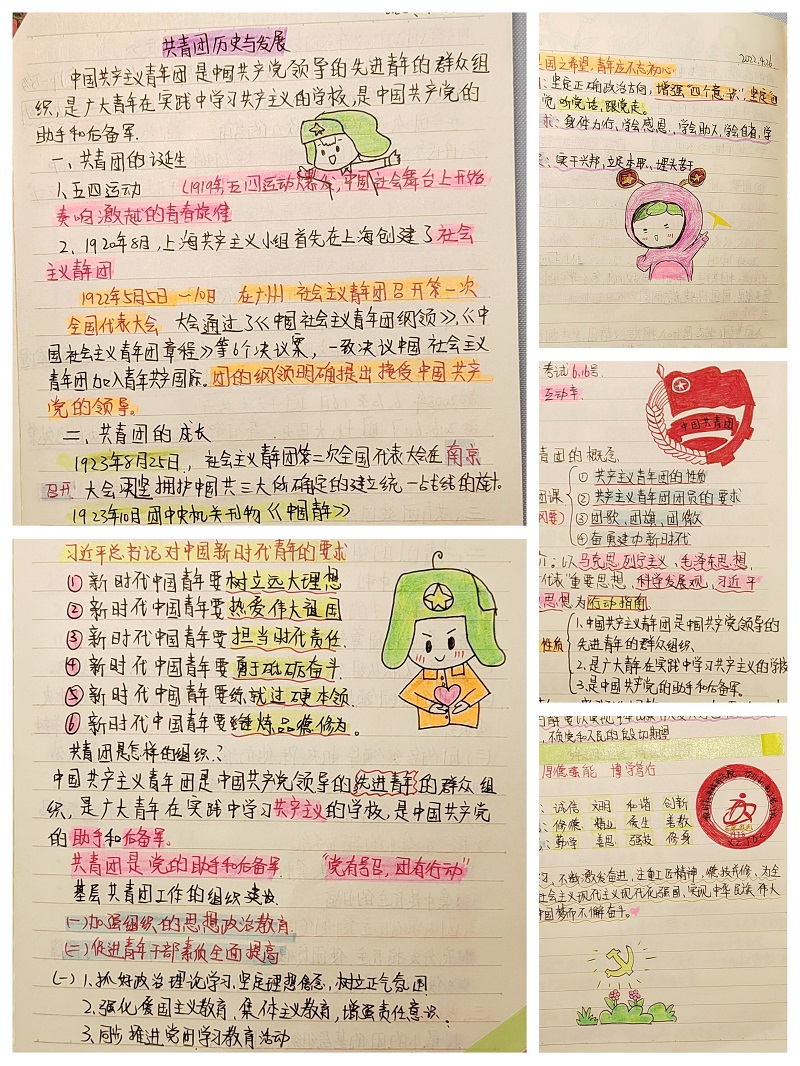 共青团历史与发展
中国共产主义青年团是中国共产党领导的先进青年的群众组
织,是广大青年在实践中学习共产主义的学校,是中国共产党的
助手和后备军.
一、共青团的诞生
1.五四运动 (1919年五四运动爆发,中国社会舞台上开始
奏响激越的青春旋律
2、1920年8月,上海共产主义小组首先在上海创建了社会
主义青年团
1922年5月5日~10日 在广州 社会主义青年团召开第一次
全国代表大会 大会通过了《中国社会主义青年团纲领》、《中
国社会主义青年团章程》等6个决议案,一致决议中国社会主义
青年团加入青年共产国际。团的纲领明确提出接受中国共产
党的领导。
二、共青团的成长
1923年8月25日,社会主义青年团第二次全国代表大会在南京
召开 大会决坚拥护中国共三大所确定的建立统一战线的方针.
1923年10月团中央机关刊物《中国青年》
习近平总书记对中国新时代青年的要求
① 新时代中国青年要树立远大理想
② 新时代中国青年要热爱伟大祖国
③ 新时代中国青年要担当时代责任.
④ 新时代中国青年要勇于砥砺奋斗.
⑤ 新时代中国青年要练就过硬本领.
⑥ 新时代中国青年要锤炼品德修为。
共青团是怎样的组织?
中国共产主义青年团是中国共产党领导的先进青年的群众组
织,是广大青年在实践中学习共产主义的学校,是中国共产党
的助手和后备军.
共青团是党的助手和后备军 “党有号召,团有行动”
基层共青团工作的组织建设
(一)加强组织的思想政治教育.
(二)促进青年干部素质全面提高
(一) 1.抓好政治理论学习,坚定理想信念,树立正气氛围
2.强化爱国主义教育,集体主义教育,增强责任意识.
3.同步推进党团学习教育活动
2022.4.26
国之希望,青年应不忘初心
坚定正确政治方向,增强“四个意识”,坚定
党,听党话,跟党走。
求:身体力行,学会感恩,学会助人,学会自育,学
实干兴邦,立足本职、埋头苦干
考试 6.16号
互动率
中国共青团
青团的概念.
团课
① 共产主义青年团的性质
② 共产主义青年团团员的要求
③ 团歌、团旗、团徽
④ 奋勇建功新时代
以马克思列宁主义、毛泽东思想,
代表”重要思想,科学发展观,习近平
思想为行动指南.
性质
1.中国共产主义青年团是中国共产党领导的
先进青年的群众组织、
2.是广大青年在实践中学习共产主义的学校
3.是中国共产党的助手和后备军。
不负党和人民的殷切期望
厚德强能 博学笃行
诚信 文明 和谐 创新
修德 精业 爱生 善教
勤学 善思 强技 修身
习,不断激发奋进,注重工匠精神,德技并修,为全
社会主义现代主义现代化强国,实现中华民族伟大
中国梦而不懈奋斗。